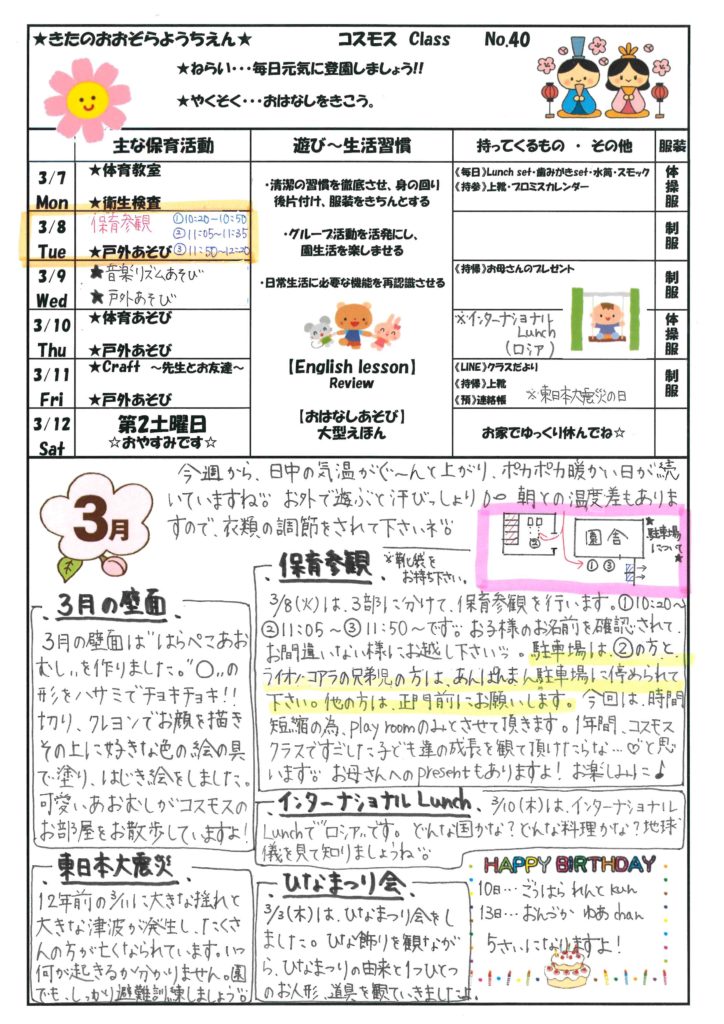 ★きたのおおぞらようちえん★ コスモス Class No.40
★ねらい・・・毎日元気に登園しましょう!!
★やくそく・・・おはなしをきこう。
主な保育活動 遊び～生活習慣 持ってくるもの ・ その他 服装
3/7 Mon
★体育教室
★衛生検査
《毎日》Lunch set・歯みがきset・水筒・スモック
《持参》上靴・プロミスカレンダー
体操服
3/8 Tue
保育参観 ①10:20〜10:50
②11:05〜11:35
★戸外あそび ③11:50〜12:20
制服
3/9 Wed
★音楽リズムあそび
★戸外あそび
《持帰》お母さんのプレゼント
制服
3/10 Thu
★体育あそび
★戸外あそび
※インターナショナル
Lunch
(ロシア)
体操服
3/11 Fri
★Craft ～先生とお友達～
★戸外あそび
《LINE》クラスだより
《持帰》上靴
《預》連絡帳 ※東日本大震災の日
制服
3/12 Sat
第2土曜日
☆おやすみです☆
お家でゆっくり休んでね☆
・清潔の習慣を徹底させ、身の回り
後片付け、服装をきちんとする
・グループ活動を活発にし、
園生活を楽しませる
・日常生活に必要な機能を再認識させる
【English lesson】
Review
【おはなしあそび】
大型えほん
3月
今週から、日中の気温がぐ〜んと上がり、ポカポカ暖かい日が続
いていますね。お外で遊ぶと汗びっしょり 朝との温度差もありま
すので、衣類の調節をされて下さいネ。
園舎
②
① ③
★駐車場
について★
3月の壁面
3月の壁面は"はらぺこあお
むし"を作りました。"○"の
形をハサミでチョキチョキ!!
切り、クレヨンでお顔を描き
その上に好きな色の絵の具
で塗り、はじき絵をしました。
可愛いあおむしがコスモスの
お部屋をお散歩していますよ!
保育参観 ※靴袋を
お持ち下さい。
3/8(火)は、3部に分けて、保育参観を行います。①10:20〜
②11:05〜③11:50〜です。お子様のお名前を確認されて、
お間違いない様にお越し下さいッ。駐車場は、②の方と、
ライオン・コアラの兄弟児の方は、あんぱんまん駐車場に停められて
下さい。他の方は、正門前にお願いします。今回は、時間
短縮の為、play roomのみとさせて頂きます。1年間、コスモス
クラスですごした子ども達の成長を観て頂けたらな…♡と思
います。お母さんへのpresentもありますよ!お楽しみに♪
インターナショナルLunch 3/10(木)は、インターナショナル
Lunchで"ロシア"です。どんな国かな?どんな料理かな?地球
儀を見て知りましょうね。
東日本大震災
12年前の3/11に大きな揺れと
大きな津波が発生し、たくさ
んの方が亡くなられています。いつ
何が起きるか分かりません。園
でも、しっかり避難訓練しましょう。
ひなまつり会
3/3(木)は、ひなまつり会をし
ました。ひな飾りを観なが
ら、ひなまつりの由来と1つひとつ
のお人形、道具を観ていきましたよ。
HAPPY BIRTHDAY
10日…ごうはら れんと kun
13日…おんづか ゆあ chan
5さいになりますよ!